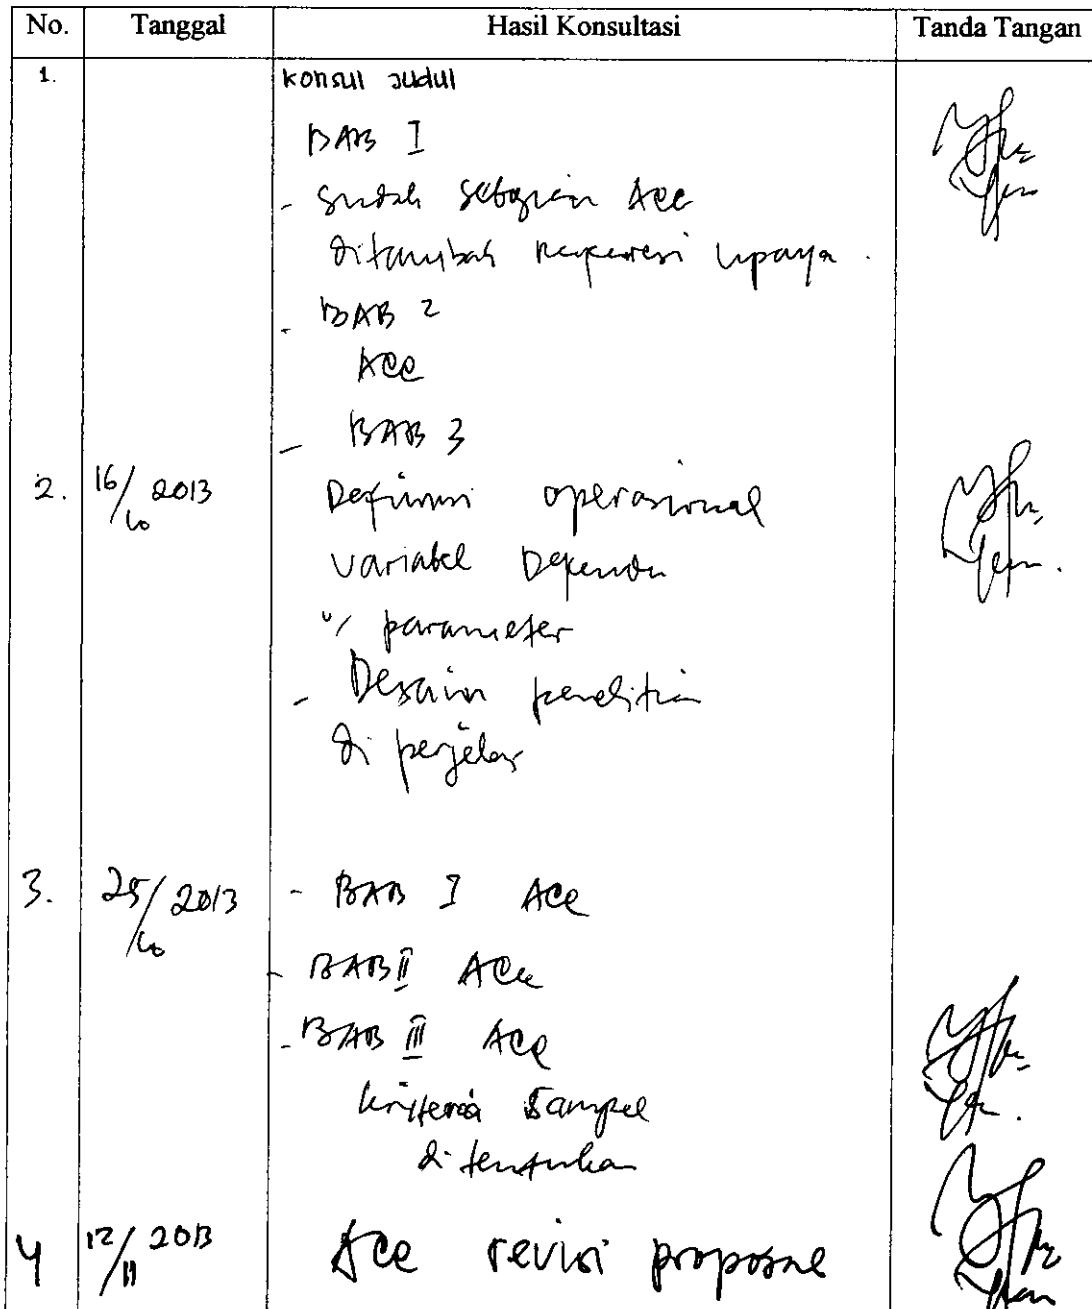 No. Tanggal Hasil Konsultasi Tanda Tangan
1. konsul judul
BAB I
- sudah sebagian Acc
ditambah upaya.
- BAB 2
Acc
- BAB 3
2. 16/10 2013 Definisi operasional
variabel Dependen
parameter
- Desain penelitian
di perjelas
3. 25/10 2013 - BAB I Acc
- BAB II Acc
- BAB III Acc
kriteria sampel
ditentukan
4 12/11 2013 Acc revisi proposal